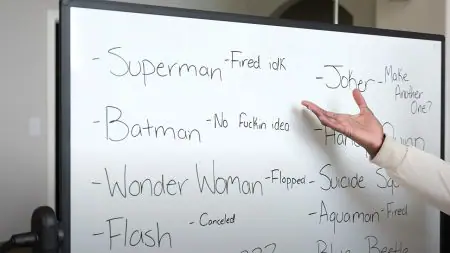 - Superman - Fired idk
- Batman - No fuckin idea
- Wonder Woman - Flopped
- Flash - Canceled
- Joker - Make Another One?
- Suicide
- Aquaman - Fired
Blue Beetle